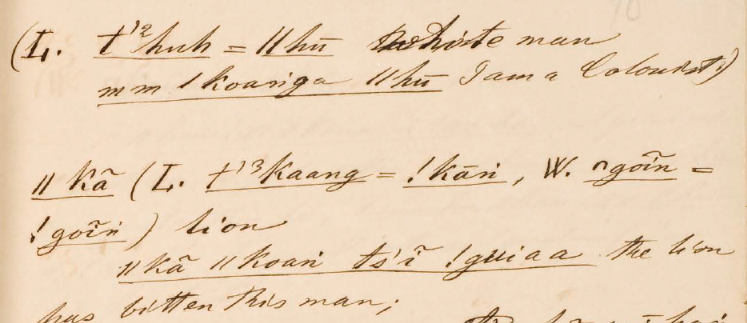 (L. t'²huh = ǁhū white man
mm ǀkoaṅga ǁhū I am a Colourist)
ǁkã (L. t'³kaang = !kāṅ, W. ꞌgoĩṅ =
!goĩṅ) lion
ǁkã ǁkoaṅ ts'ĩ !guiaa the lion
has bitten this man;